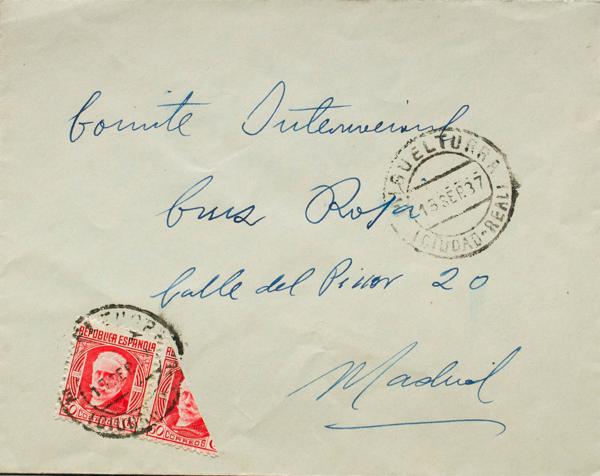 Comite Internacional
Cruz Roja
Calle del Pinar 20
Madrid
MIGUELTURRA
15 SEP 37
(CIUDAD-REAL)
REPUBLICA ESPAÑOLA
CORREOS